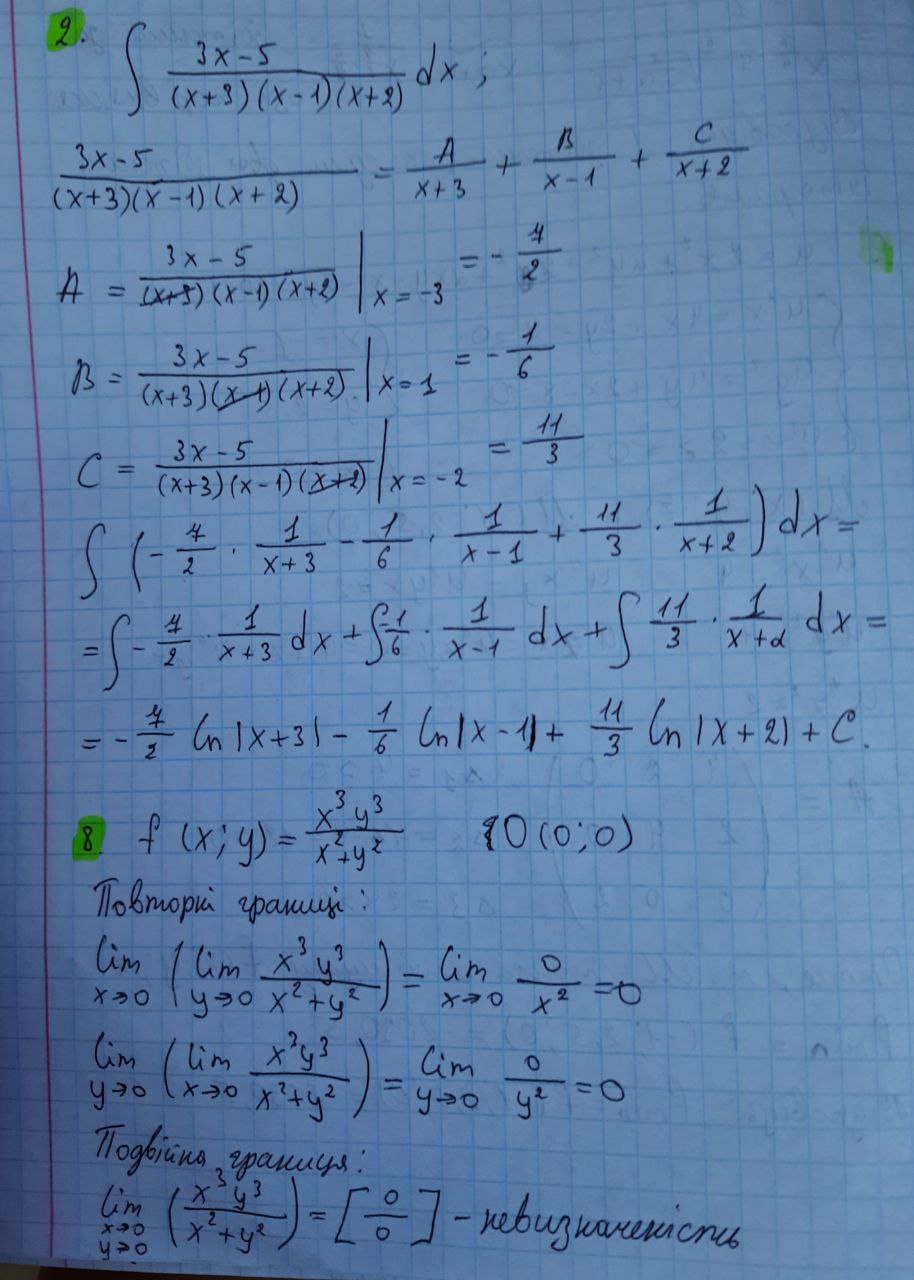 2. ∫ (3x-5)/((x+3)(x-1)(x+2)) dx;
(3x-5)/((x+3)(x-1)(x+2)) = A/(x+3) + B/(x-1) + C/(x+2)
A = (3x-5)/((x+3)(x-1)(x+2)) | x=-3 = -7/2
B = (3x-5)/((x+3)(x-1)(x+2)) | x=1 = -1/6
C = (3x-5)/((x+3)(x-1)(x+2)) | x=-2 = 11/3
∫ (-7/2 · 1/(x+3) - 1/6 · 1/(x-1) + 11/3 · 1/(x+2)) dx =
= ∫ -7/2 · 1/(x+3) dx + ∫ -1/6 · 1/(x-1) dx + ∫ 11/3 · 1/(x+2) dx =
= -7/2 ln|x+3| - 1/6 ln|x-1| + 11/3 ln|x+2| + C.
8. f(x;y) = x³y³/(x²+y²) O(0;0)
Повторкі границі:
lim x→0 (lim y→0 x³y³/(x²+y²)) = lim x→0 0/x² = 0
lim y→0 (lim x→0 x³y³/(x²+y²)) = lim y→0 0/y² = 0
Подвійна границя:
lim x→0 y→0 (x³y³/(x²+y²)) = [0/0] - невизначеність